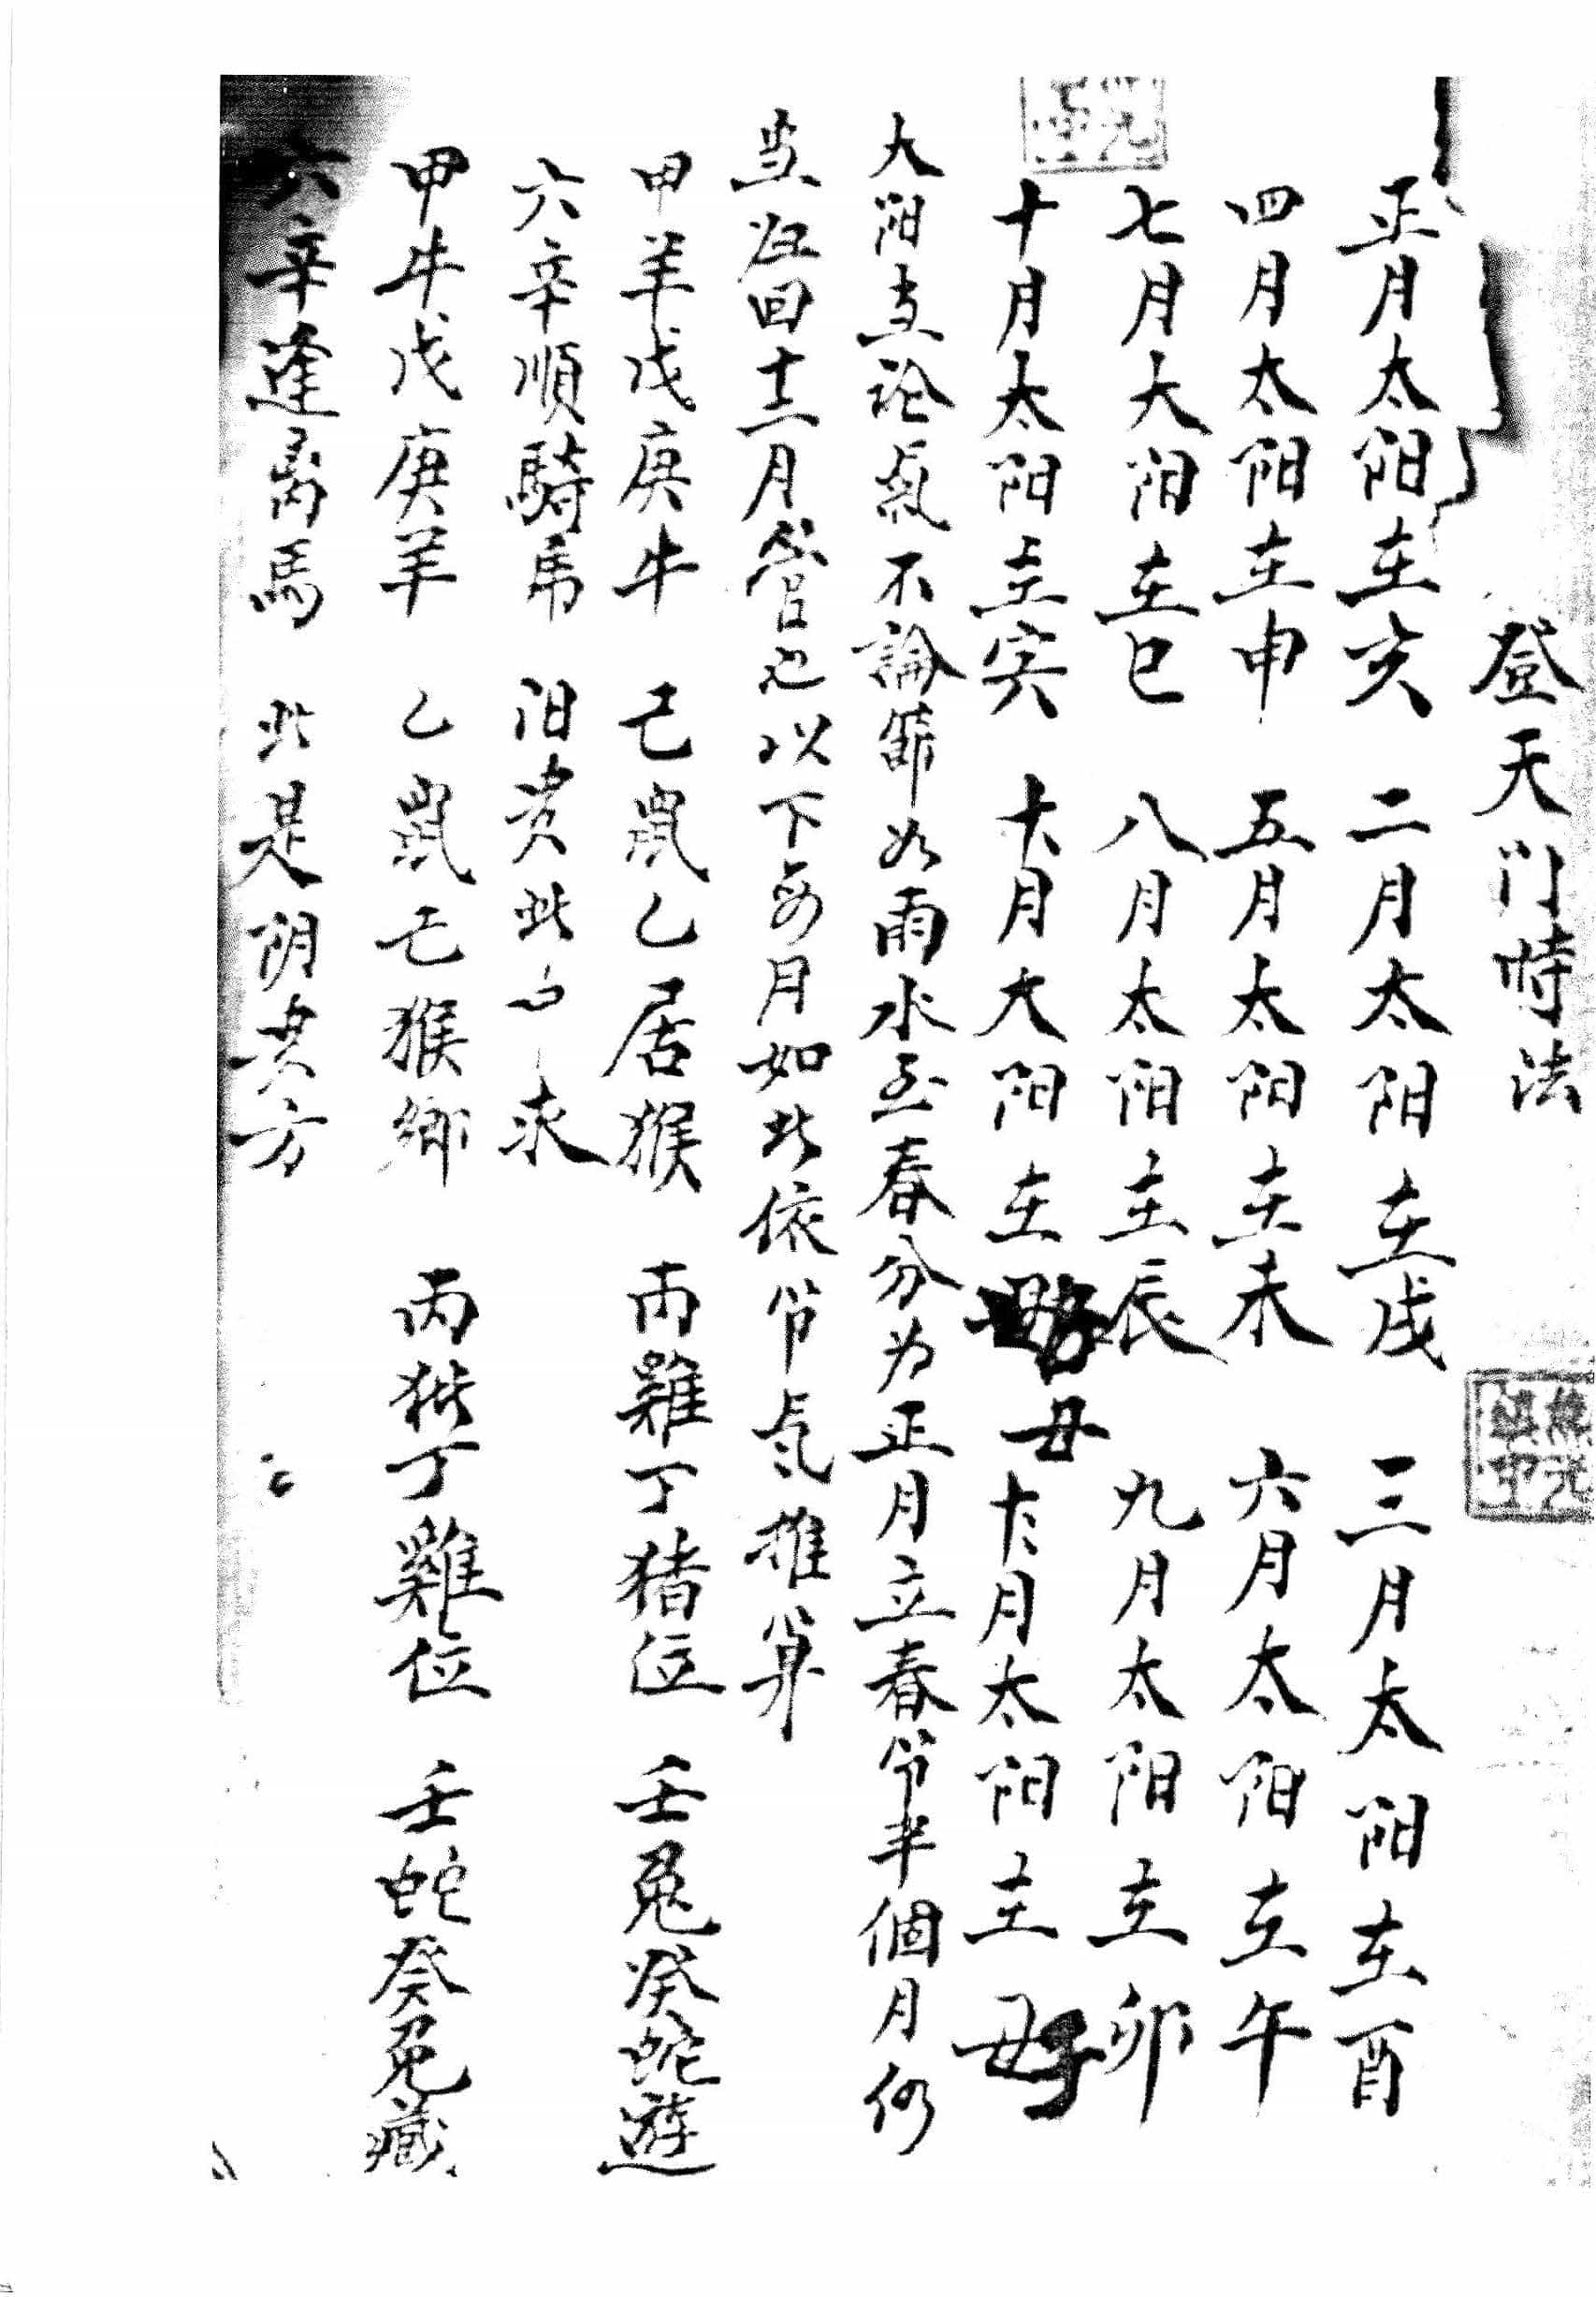 登天门時法
正月太阳在亥 二月太阳在戌 三月太阳在酉
四月太阳在申 五月太阳在未 六月太阳在午
七月大阳在巳 八月太阳在辰 九月太阳在卯
十月太阳在寅 十一月大阳在丑 十二月太阳在子
大阳在论氣不論節 如雨水至春分为正月立春节半個月仍
当归回十二月管也以下每月如此依节气推算
甲羊戊庚牛 己鼠乙居猴 丙雞丁猪位 壬兔癸蛇遊
六辛順騎馬 阳贵此中求
甲牛戊庚羊 乙鼠己猴鄉 丙猪丁雞位 壬蛇癸兔藏
六辛逢离馬 此是阴贵方